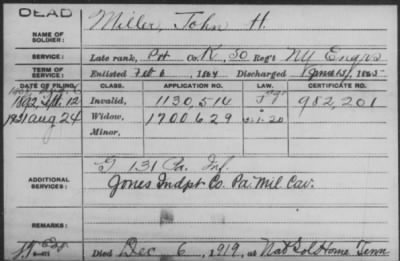 DEAD
NAME OF SOLDIER: Miller, John H.
SERVICE: Late rank, Pvt Co. K, 50 Reg't NY Engrs
TERM OF SERVICE: Enlisted Feb 6, 1864 Discharged June 13, 1865
DATE OF FILING. CLASS. APPLICATION NO. LAW. CERTIFICATE NO.
1892 Sept. 12 Invalid, 1130,514 982,201
1921 Aug 24 Widow, 1700629
Minor,
ADDITIONAL SERVICES: G 131 Pa. Inf.
Jones Indpt Co. Pa. Mil. Cav.
REMARKS:
Died Dec 6, 1919, at Nat Sol Home Tenn